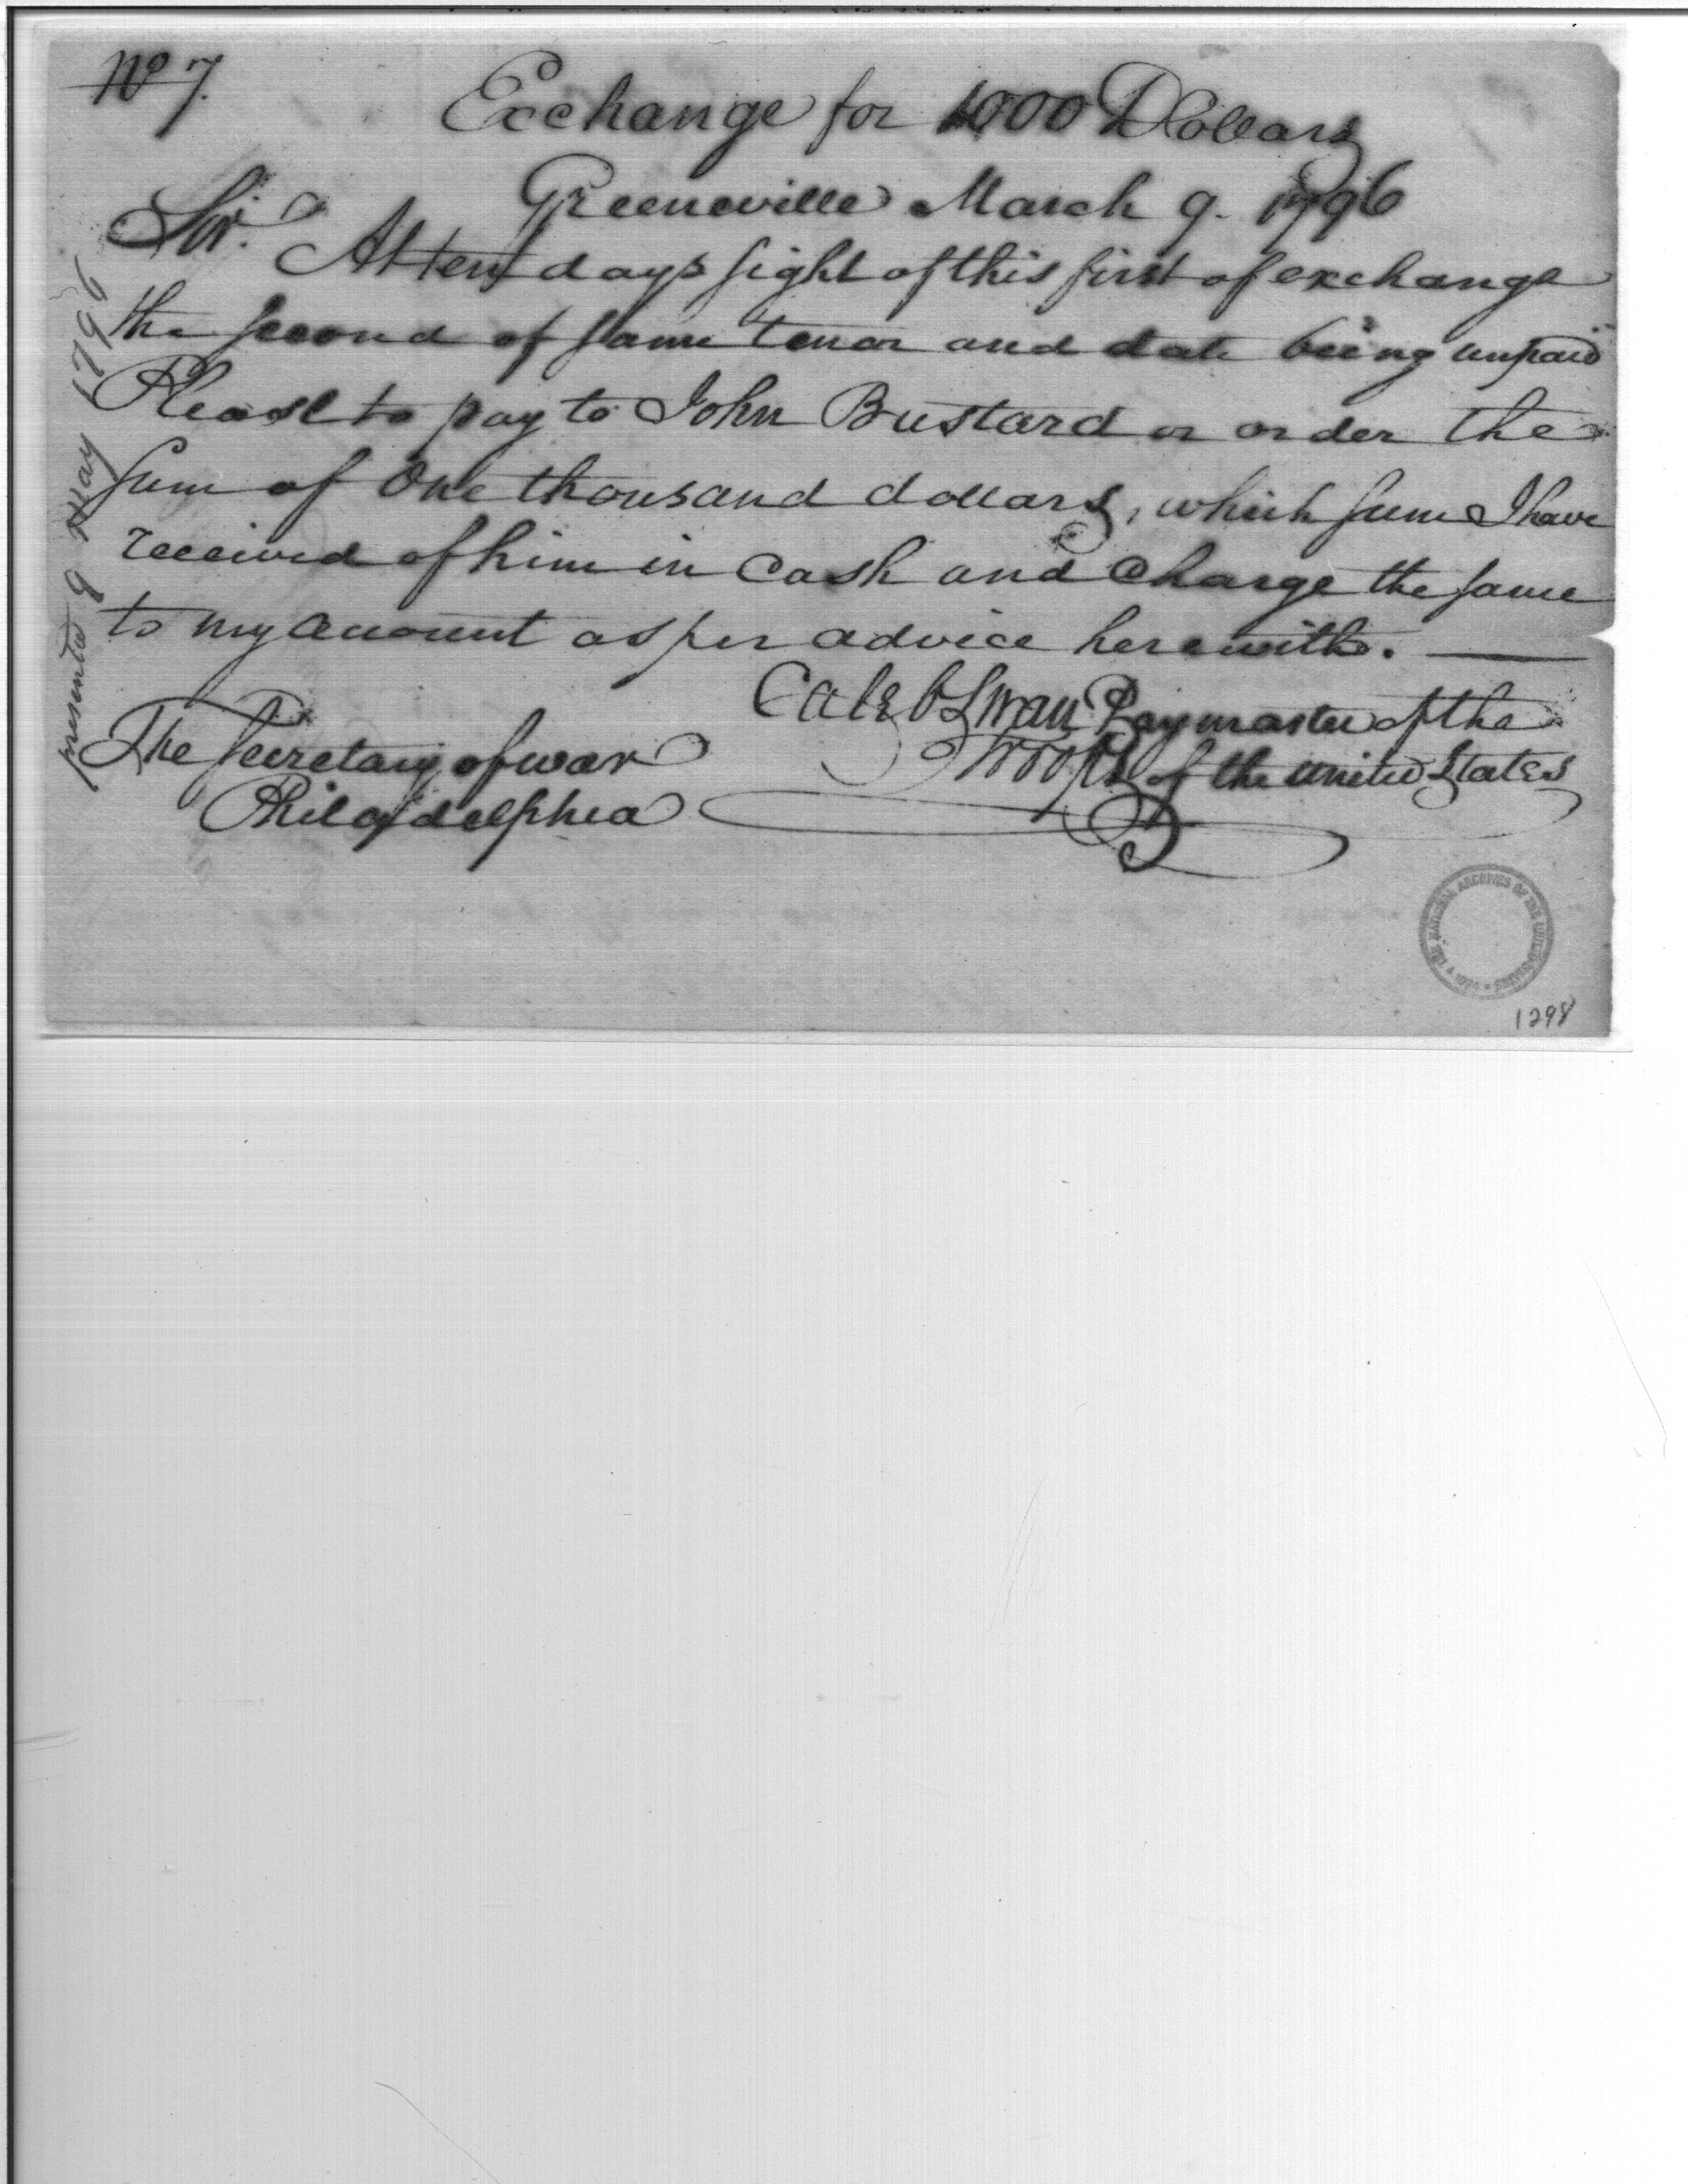 No 7.
Exchange for 1000 Dollars
Greeneville March 9. 1796
Sir.
At ten days sight of this first of exchange
the second of same tenor and date being unpaid
Please to pay to John Bustard or order the
sum of One thousand dollars, which sum I have
received of him in Cash and Charge the same
to my account as per advice herewith.
Caleb Swan Paymaster of the
Troops of the United States
The Secretary of war
Philadelphia
presented 9 May 1796
THE NATIONAL ARCHIVES OF THE UNITED STATES * 1934 *
1298